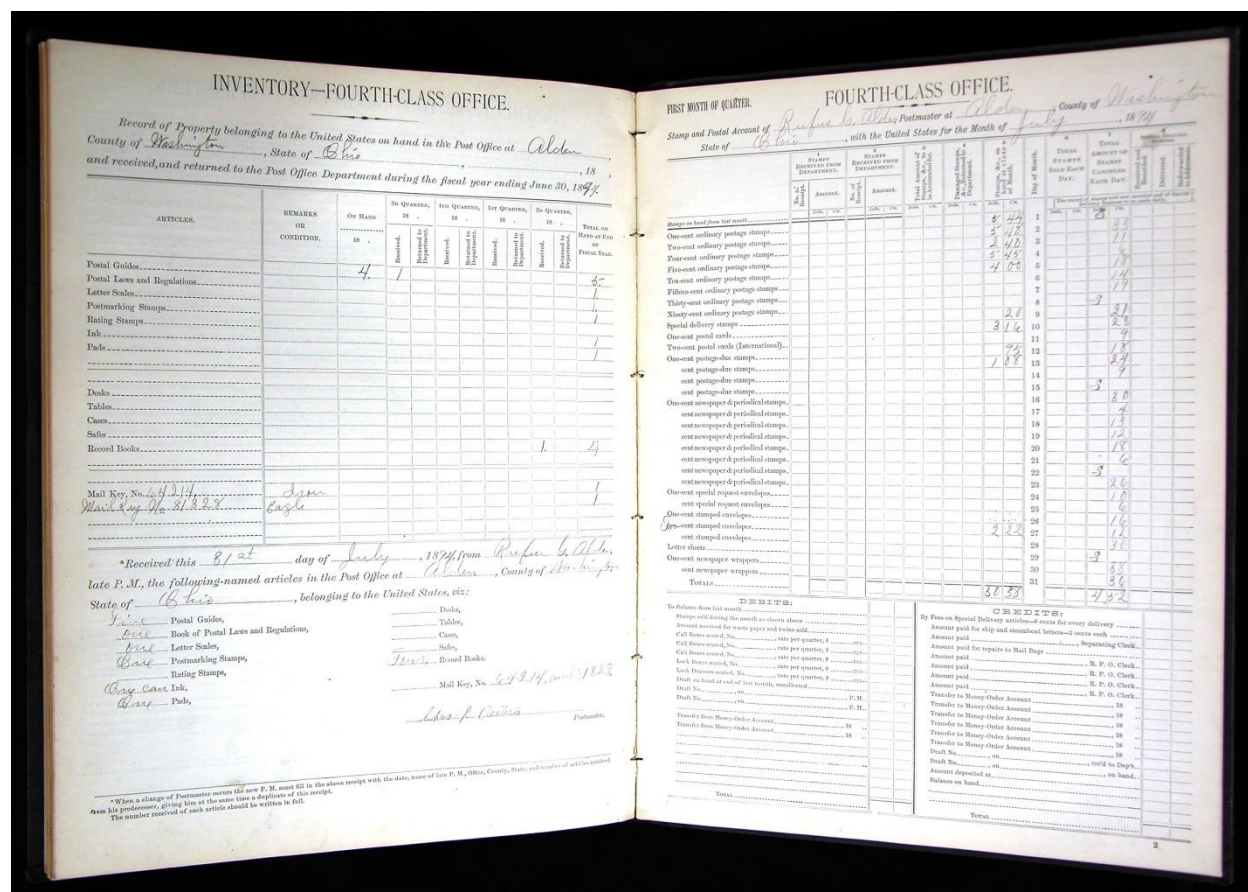 INVENTORY—FOURTH-CLASS OFFICE.
Record of Property belonging to the United States on hand in the Post Office at Alden,
County of Washington, State of Ohio, , 18 ,
and received, and returned to the Post Office Department during the fiscal year ending June 30, 189
ARTICLES.
REMARKS OR CONDITION.
ON HAND 18 .
3D QUARTER, 18 .
4TH QUARTER, 18 .
1ST QUARTER, 18 .
2D QUARTER, 18 .
TOTAL ON HAND AT END OF FISCAL YEAR.
Received. Returned to Department. Received. Returned to Department. Received. Returned to Department. Received. Returned to Department.
Postal Guides 4 1 5
Postal Laws and Regulations 1
Letter Scales 1
Postmarking Stamps 1
Rating Stamps
Ink 1
Pads 1
Desks
Tables
Cases
Safes
Record Books 1. 4
Mail Key, No. 64214 Iron 1
Mail Key No 81828 Eagle 1
*Received this 31st day of July, 1894, from Rufus G. Alden,
late P. M., the following-named articles in the Post Office at Alden, County of Washington
State of Ohio, belonging to the United States, viz:
Five Postal Guides, Desks,
One Book of Postal Laws and Regulations, Tables,
One Letter Scales, Cases,
One Postmarking Stamps, Safes,
Rating Stamps, Four Record Books.
One can Ink, Mail Key, No. 64214, and 81828
One Pads,
Postmaster.
*When a change of Postmaster occurs the new P. M. must fill in the above receipt with the date, name of late P. M., Office, County, State, and number of articles received
from his predecessor, giving him at the same time a duplicate of this receipt.
The number received of each article should be written in full.
FIRST MONTH OF QUARTER.
FOURTH-CLASS OFFICE.
Stamp and Postal Account of Rufus G. Alden Postmaster at Alden, County of Washington
State of Ohio, with the United States for the Month of July, 1894
1 STAMPS RECEIVED FROM DEPARTMENT.
2 STAMPS RECEIVED FROM DEPARTMENT.
No. of Receipt. Amount. No. of Receipt. Amount.
Day of Month.
TOTAL STAMPS SOLD EACH DAY.
TOTAL AMOUNT OF STAMPS CANCELED EACH DAY.
Stamps on hand from last month
One-cent ordinary postage stamps 5 44
Two-cent ordinary postage stamps 5 48
Four-cent ordinary postage stamps 2 40
Five-cent ordinary postage stamps 5 45
Ten-cent ordinary postage stamps 4 00
Fifteen-cent ordinary postage stamps
Thirty-cent ordinary postage stamps
Ninety-cent ordinary postage stamps
Special delivery stamps 20
One-cent postal cards 3 16
Two-cent postal cards (International)
One-cent postage-due stamps 95
cent postage-due stamps 1 08
cent postage-due stamps
cent postage-due stamps
One-cent newspaper & periodical stamps
cent newspaper & periodical stamps
cent newspaper & periodical stamps
cent newspaper & periodical stamps
cent newspaper & periodical stamps
cent newspaper & periodical stamps
cent newspaper & periodical stamps
cent newspaper & periodical stamps
One-cent special request envelopes
cent special request envelopes
One-cent stamped envelopes
cent stamped envelopes 2 22
cent stamped envelopes
Letter sheets
One-cent newspaper wrappers
cent newspaper wrappers
TOTALS 30 38 4 52
1
2
3
4
5
6
7
8
9 21
10 23
11 9
12 18
13 24
14 9
15
16 30
17 4
18 13
19 12
20 18
21 6
22
23 26
24 10
25 6
26 16
27 12
28
29
30 38
31 36
DEBITS:
To Balance from last month
Stamps sold during the month as shown above
Amount received for waste paper and twine sold
Call Boxes rented, No. , rate per quarter, $
Call Boxes rented, No. , rate per quarter, $
Call Boxes rented, No. , rate per quarter, $
Lock Boxes rented, No. , rate per quarter, $
Lock Drawers rented, No. , rate per quarter, $
Draft on hand at end of last month, uncollected
Draft No. , on , P. M.
Draft No. , on , P. M.
Transfer from Money-Order Account , 18
Transfer from Money-Order Account , 18
TOTAL
CREDITS:
By Fees on Special Delivery articles—8 cents for every delivery
Amount paid for ship and steamboat letters—2 cents each
Amount paid , Separating Clerk
Amount paid for repairs to Mail Bags
Amount paid , R. P. O. Clerk
Amount paid , R. P. O. Clerk
Amount paid , R. P. O. Clerk
Amount paid , R. P. O. Clerk
Transfer to Money-Order Account , 18
Transfer to Money-Order Account , 18
Transfer to Money-Order Account , 18
Transfer to Money-Order Account , 18
Transfer to Money-Order Account , 18
Draft No. , on , ret'd to Dep't
Draft No. , on , on hand
Amount deposited at
Balance on hand
TOTAL
2